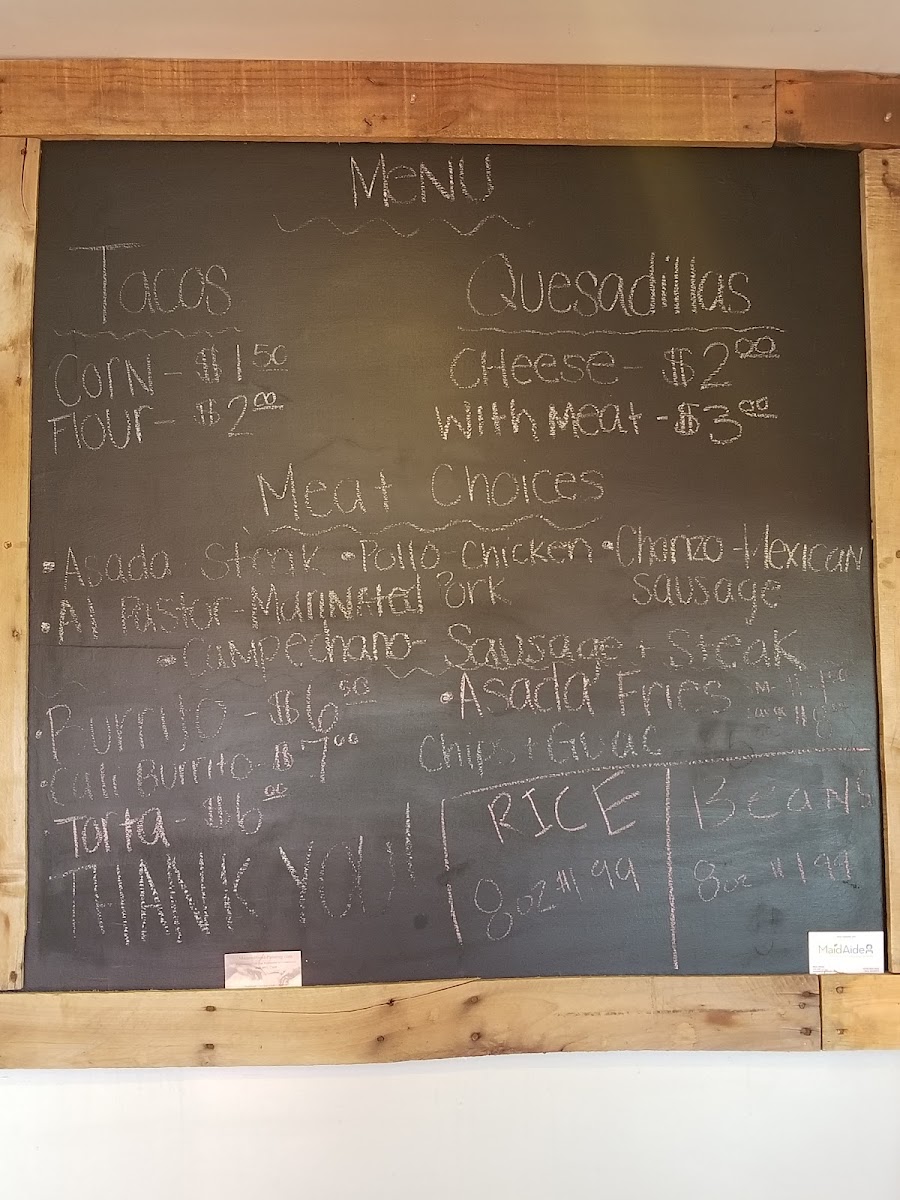 MeNU
Tacos
Corn - $1.50
Flour - $2.00
Quesadillas
CHeese - $2.00
With Meat - $3.00
Meat Choices
• Asada - Steak • Pollo - Chicken • Chorizo - Mexican Sausage
• Al Pastor - Marinated Pork
• Campechano - Sausage + Steak
• Burrito - $6.50
• Cali Burrito - $7.00
Torta - $6.00
THANK YOU!!
• Asada Fries
Chips + Guac
RICE
8oz $1.99
Beans
8oz $1.99
MaidAide